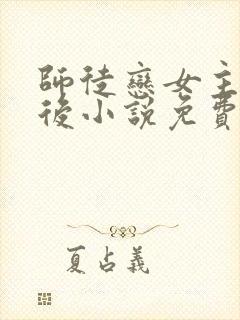 師徒戀女主
後小說免費
夏占義